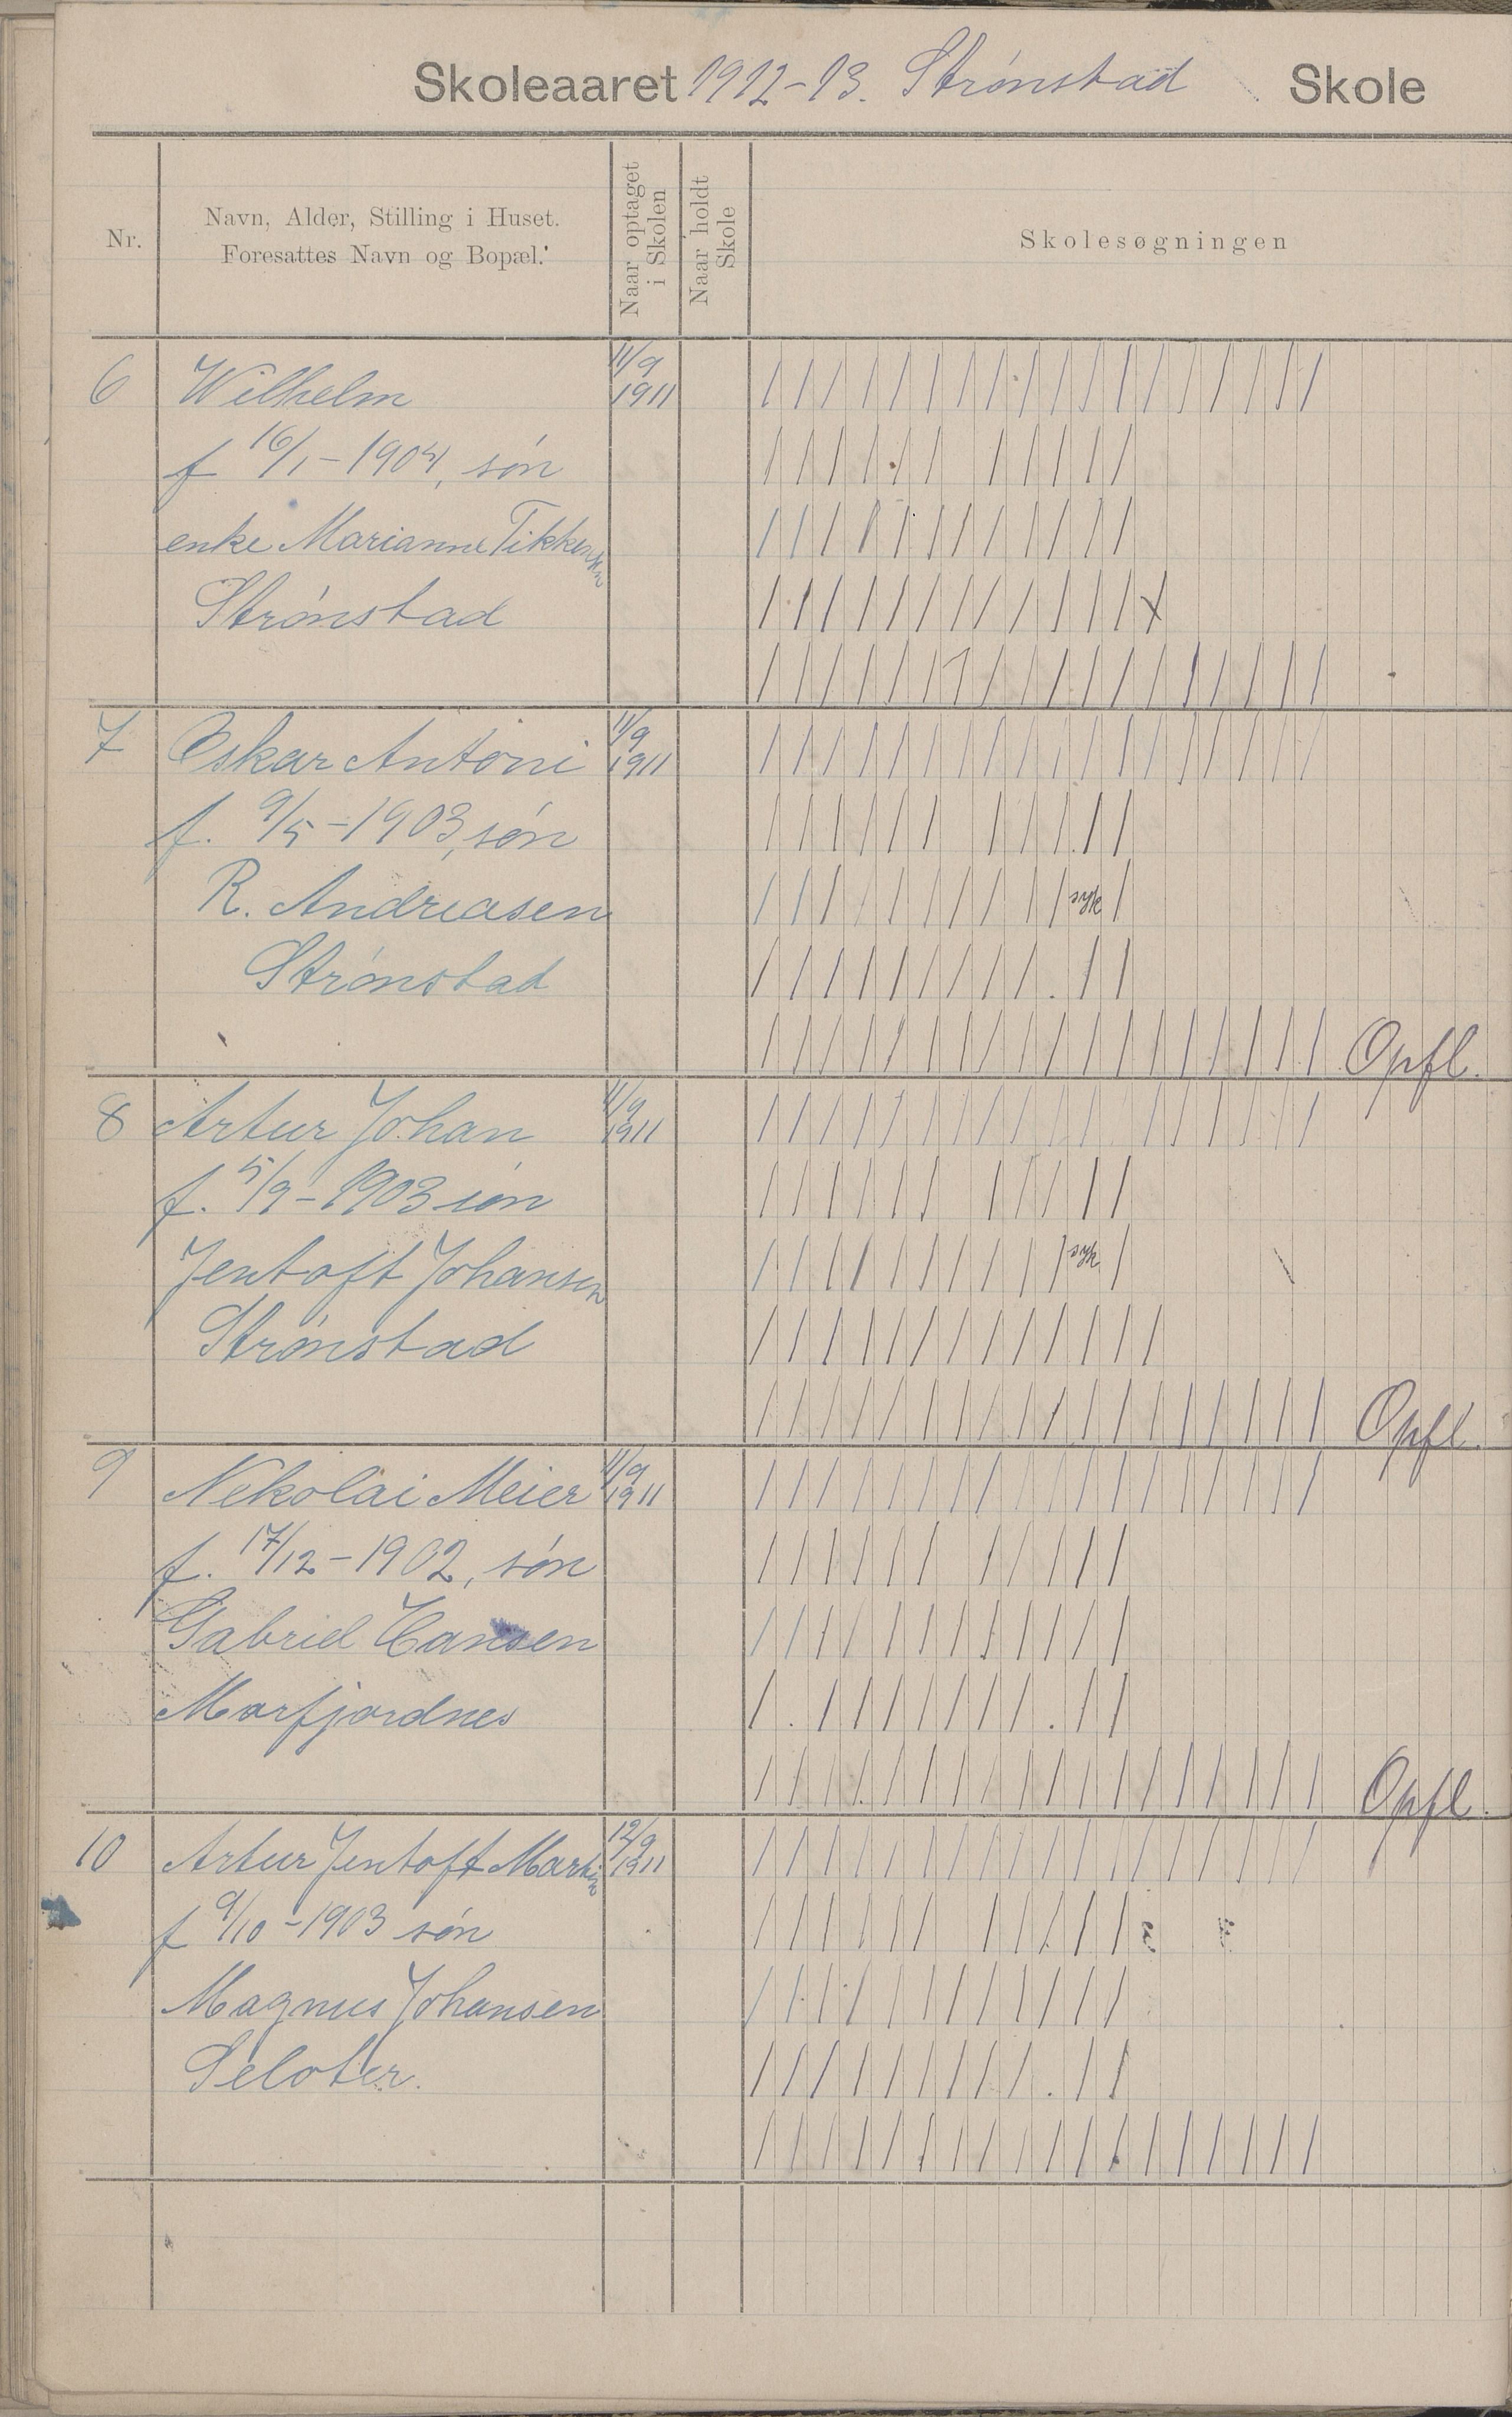 Skoleaaret 1912-13. Strønstad Skole
Nr.
Navn, Alder, Stilling i Huset.
Foresattes Navn og Bopæl.
Naar optaget
i Skolen
Naar holdt
Skole
Skolesøgningen
6 Wilhelm 11/9
1911
f 16/1-1904, søn
enke Marianne
Strønstad
7 Oskar Antoni 11/9
1911
f. 9/5-1903, søn
R. Andreasen syk
Strønstad
Opfl.
8 Artur Johan 11/9
1911
f. 5/9-1903 søn
Jentoft Johansen syk
Strønstad
Opfl.
9 Nekolai Meier 11/9
1911
f. 17/12-1902, søn
Gabriel Hansen
Morfjordnes
Opfl.
10 Artur Jentoft Martin 12/9
1911
f 9/10-1903 søn
Magnus Johansen
Seloter.